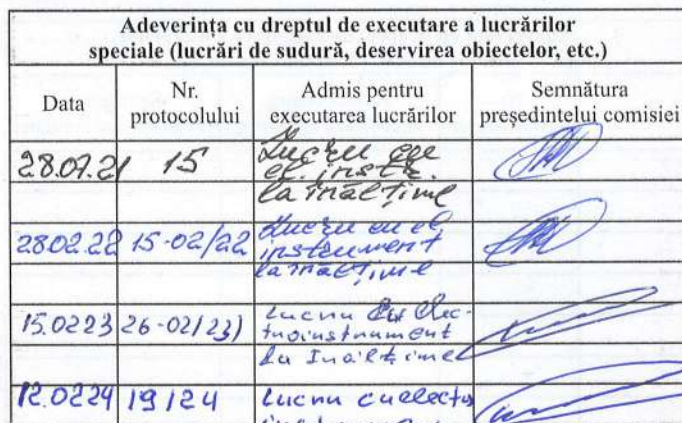 Adeverința cu dreptul de executare a lucrărilor
speciale (lucrări de sudură, deservirea obiectelor, etc.)
Data
Nr.
protocolului
Admis pentru
executarea lucrărilor
Semnătura
președintelui comisiei
28.07.21 15 Lucru cu
el. instr.
la înălțime
28.02.22 15-02/22 Lucru cu el.
instrument
la înălțime
15.0223 26-02/23) Lucru cu elec-
troinstrument
La Inălțime
12.0224 19/24 Lucru cu electro